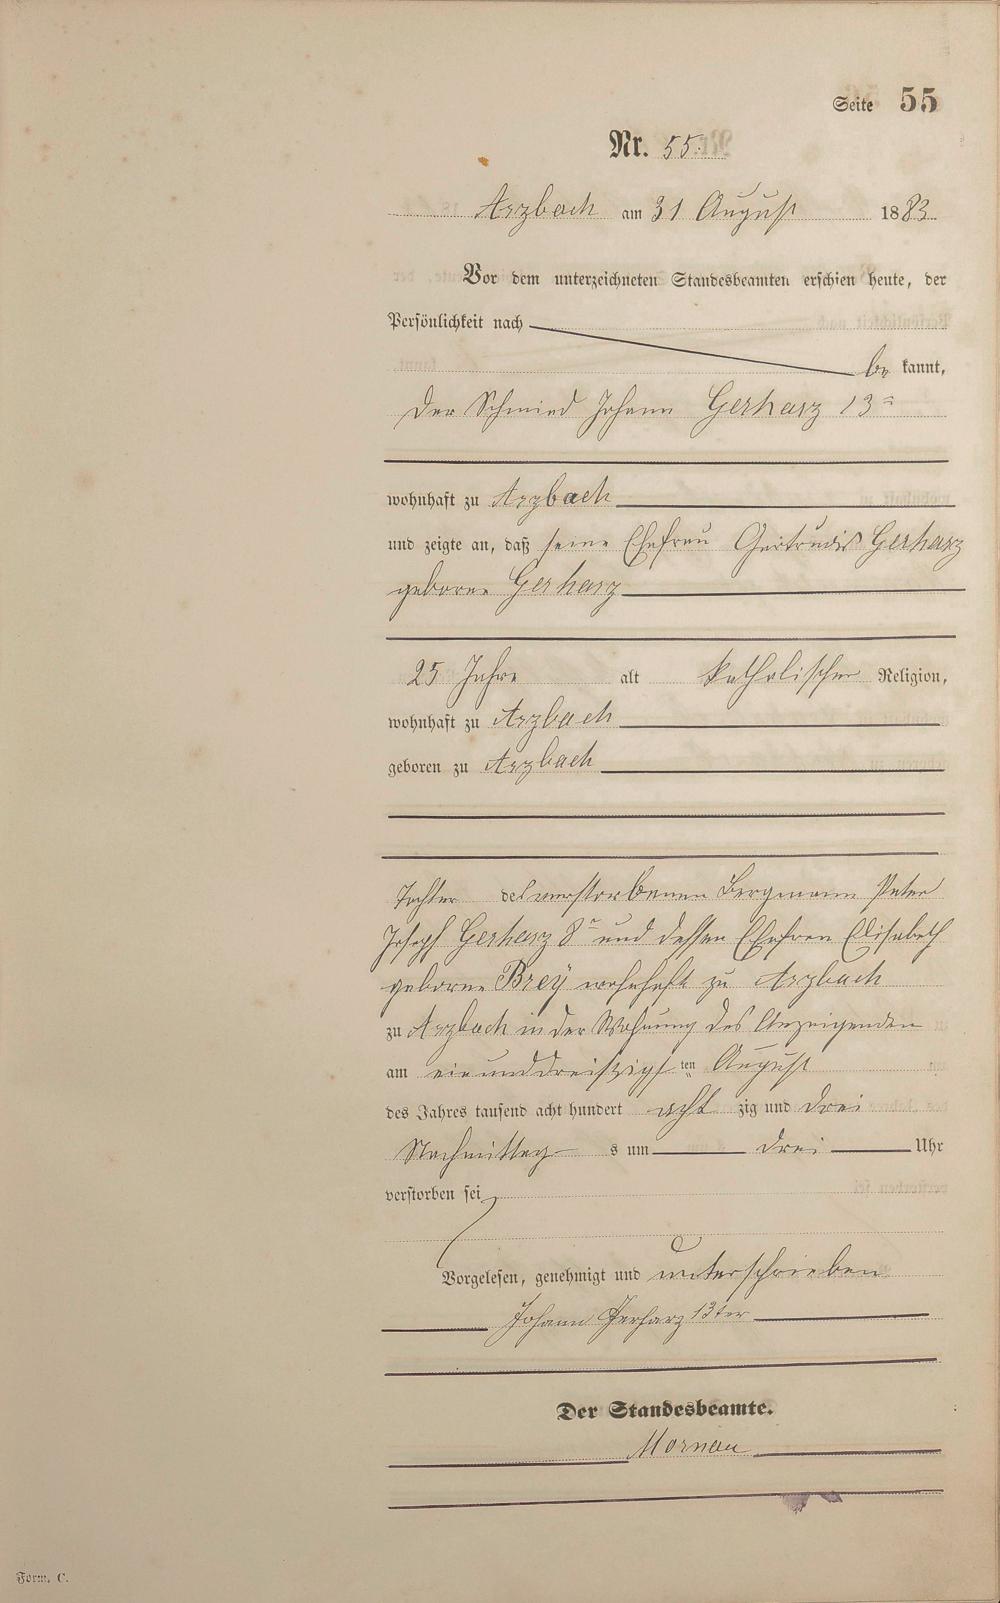 Seite 55
Nr. 55.
Arzbach am 31 August 1883.
Vor dem unterzeichneten Standesbeamten erschien heute, der
Persönlichkeit nach
be kannt,
der Schmied Johann Gerharz 13r
wohnhaft zu Arzbach
und zeigte an, daß seine Ehefrau Gertrudis Gerharz
geborne Gerharz
25 Jahre alt katholischer Religion,
wohnhaft zu Arzbach
geboren zu Arzbach
Tochter des verstorbenen Bergmann Peter
Joseph Gerharz 8r und dessen Ehefrau Elisabeth
geborne Breÿ wohnhaft zu Arzbach
zu Arzbach in der Wohnung des Anzeigenden
am einunddreiszigsten August
des Jahres tausend acht hundert acht zig und drei
Nachmittag s um drei Uhr
verstorben sei
Vorgelesen, genehmigt und unterschrieben
Johann Gerharz 13ter
Der Standesbeamte.
Form. C.